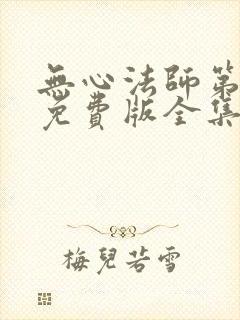 無心法師第
免費版全集
梅兒若雪